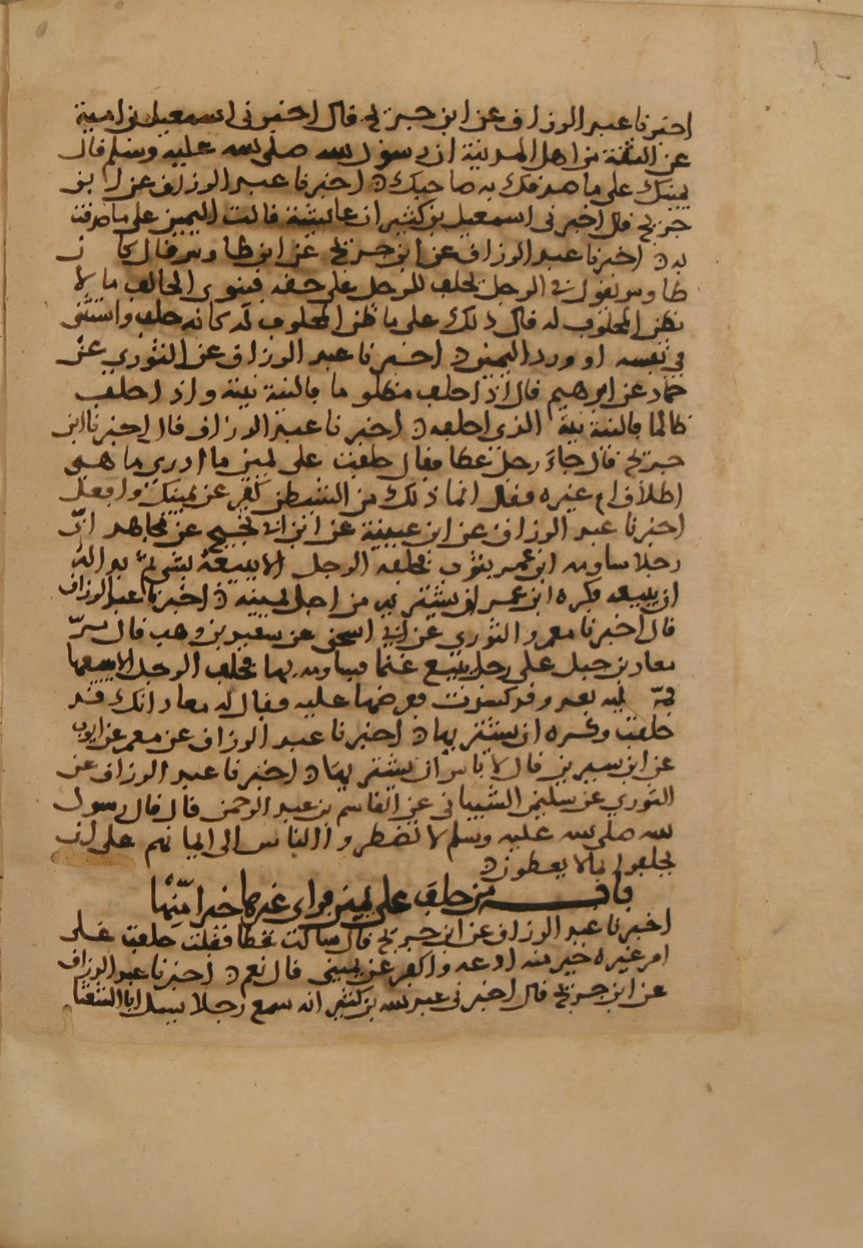 اخبرنا عبد الرزاق عن ابن جريج قال اخبرني اسمعيل بن امية
عن الثقة من اهل المدينة ان رسول الله صلى الله عليه وسلم قال
يمينك على ما صدقك به صاحبك اخبرنا عبد الرزاق عن ابن
جريج قال اخبرني اسمعيل بن كثير ان عائشة قالت اليمين على ما صدقت
به اخبرنا عبد الرزاق عن ابن جريج عن ابن طاوس قال كان
طاوس يقول في الرجل يحلف للرجل على حقه فينوي الحالف ما لا
يظن المحلوف له قال ذلك على ما ظن المحلوف له كانه حلف واستثنى
في نفسه او ورد اليمين اخبرنا عبد الرزاق عن الثوري عن
حماد عن ابرهيم قال اذا حلف مظلوما فالنية نيته واذا حلف
ظالما فالنية نية الذي احلفه اخبرنا عبد الرزاق قال اخبرنا ابن
جريج قال جاء رجل عطا فقال حلفت على يمين ما ادري ما هي
اطلاق ام غيره فقال انما ذلك من الشيطن كفر عن يمينك وافعل
اخبرنا عبد الرزاق عن ابن عيينة عن ابن ابي نجيح عن مجاهد ان
رجلا ساومه ابن عمر بثوب فحلف الرجل الا يبيعه بشيء ثم بدا له
ان يبيعه فكره ابن عمر ان يشتريه من اجل يمينه اخبرنا عبد الرزاق
قال اخبرنا معمر والثوري عن ابي اسحق عن سعيد بن وهب قال مر
معاذ بن جبل على رجل يبيع غنما فساومه بها فحلف الرجل الا يبيعها
فمر به بعد وقد كسدت فعرضها عليه فقال له معاذ انك قد
حلفت وكره ان يشتريها اخبرنا عبد الرزاق عن معمر عن ايوب
عن ابن سيرين قال لا باس ان يشتريها اخبرنا عبد الرزاق عن
الثوري عن سليمن الشيباني عن القاسم بن عبد الرحمن قال قال رسول
الله صلى الله عليه وسلم لا تضطروا الناس الى ايمانهم على ان
يحلفوا بما لا يعطون
باب من حلف على يمين فراى غيرها خيرا منها
اخبرنا عبد الرزاق عن ابن جريج قال سالت عطا فقلت حلفت على
امر غيره خير منه ادعه واكفر عن يميني قال نعم اخبرنا عبد الرزاق
عن ابن جريج قال اخبرني عبد الله بن كثير انه سمع رجلا يسل ابا الشعثا